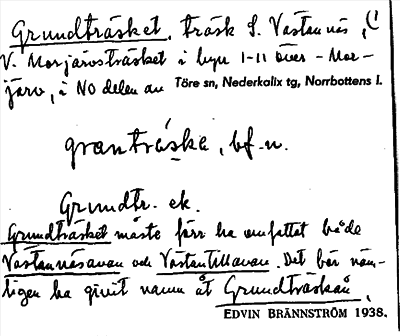 Grundträsket, träsk S. Västannäs, (i
V. Morjärvsträsket i byn 1-11 över-Mor-
järv, i NO delen av Töre sn, Nederkalix tg, Norrbottens l.
granträske, bf.-n.
Grundtr. ek.
Grundträsket måste förr ha omfattat både
Västannäsavan och Västantillavan. Det bör näm-
ligen ha givit namn åt Grundträskån.
EDVIN BRÄNNSTRÖM 1938.